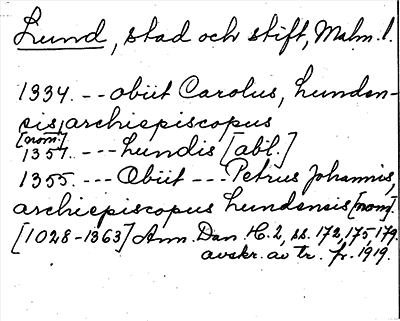 Lund, stad och stift, Malm. l.
1334. --- obiit Carolus, lunden-
sis, archiepiscopus
[nom.]
1357. ---- Lundis [abl.]
1355. ---- Obiit --- Petrus Johannis,
archiepiscopus Lundensis [nom.]
[1028-1363] Ann. Dan. H. 2, ss. 172, 175, 179.
avskr. av tr. fr. 1919.